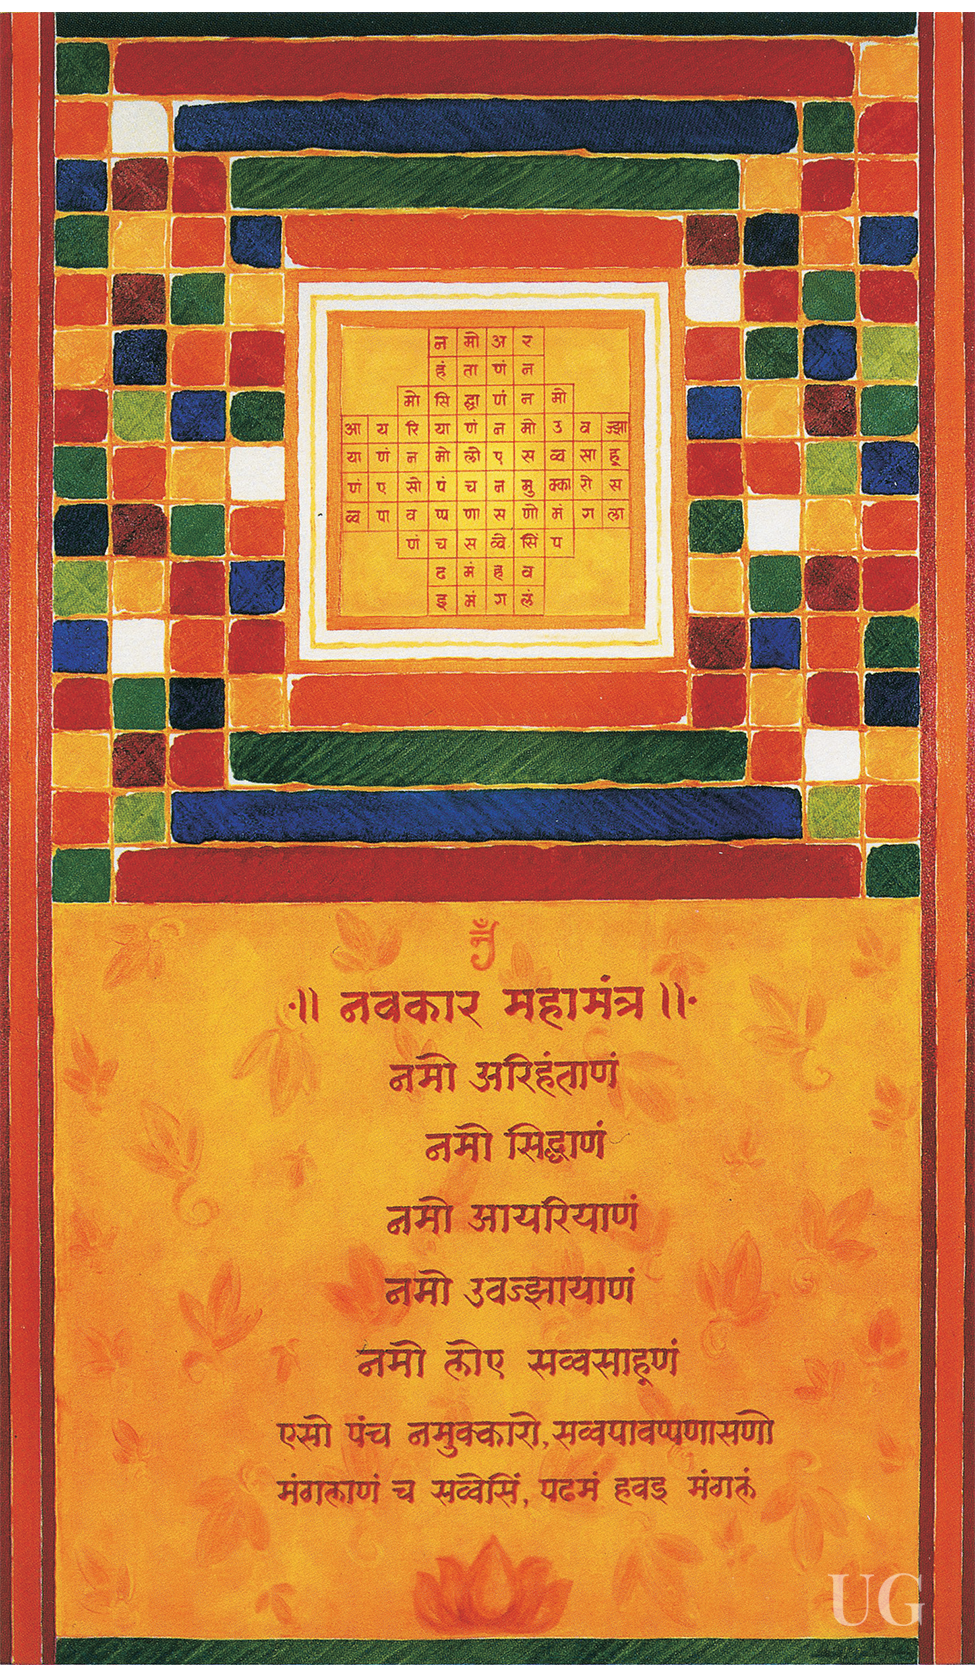 न मो अ र
हं ता णं न
मो सि द्धा णं न मो
आ य रि या णं न मो उ व ज्झा
या णं न मो लो ए स व्व सा हू
णं ए सो पं च न मु क्का रो स
व्व पा व प्प णा स णो मं ग ला
णं च स व्वे सिं प
ढ मं ह व
इ मं ग लं
ॐ
॥ नवकार महामंत्र ॥
नमो अरिहंताणं
नमो सिद्धाणं
नमो आयरियाणं
नमो उवज्झायाणं
नमो लोए सव्वसाहूणं
एसो पंच नमुक्कारो, सव्वपावप्पणासणो
मंगलाणं च सव्वेसिं, पढमं हवइ मंगलं
UG